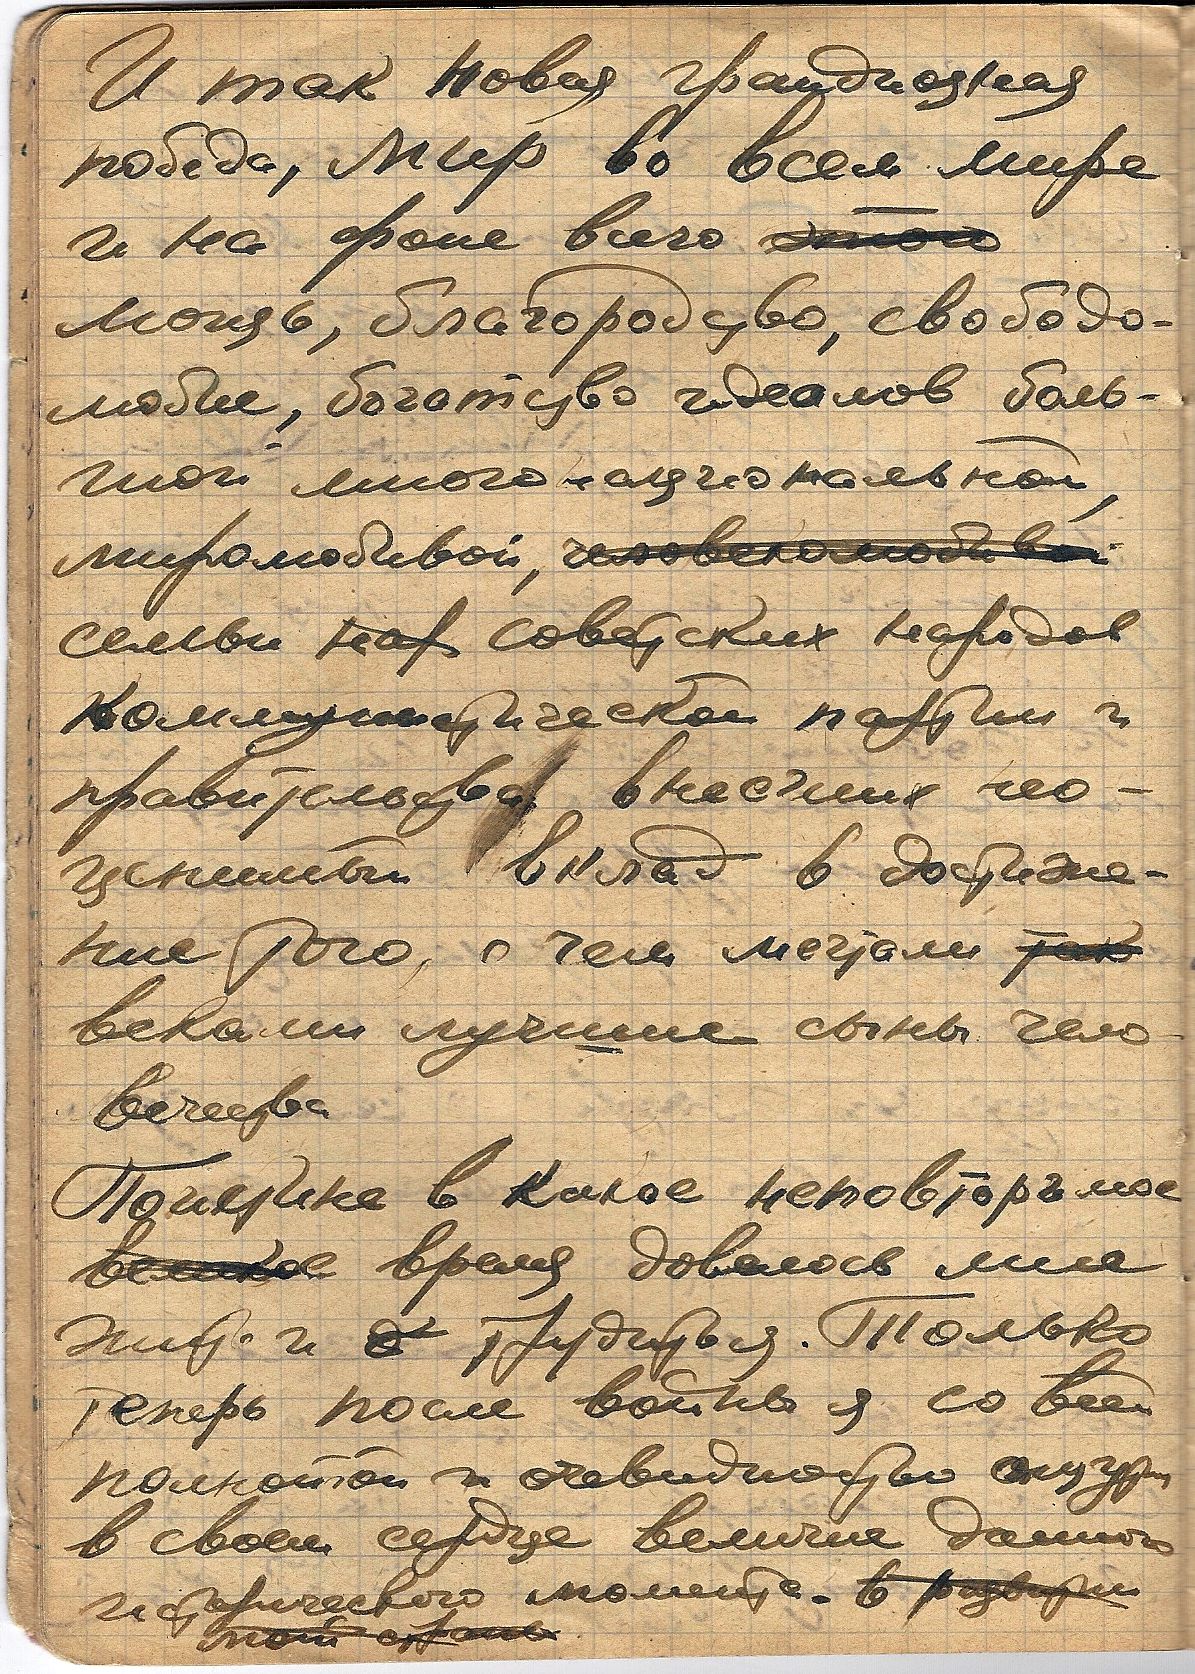 И так новая грандиозная
победа, мир во всем мире
и на фоне всего этого
мощь, благородство, свободо-
любие, богатство идеалов боль-
шой многонациональной,
миролюбивой, человеколюбивой
семьи нар советских народов
коммунистической партии и
правительства внесших нео-
ценимый вклад в достиже-
ние того, о чем мечтали так
веками лучшие сыны чело
вечества
Поистине в какое неповторимое
великое время довелось мне
жить и трудиться. Только
теперь после войны я со всей
полнотой и очевидностью ощутил
в своем сердце величие данного
исторического момента. в развитии
моей страны